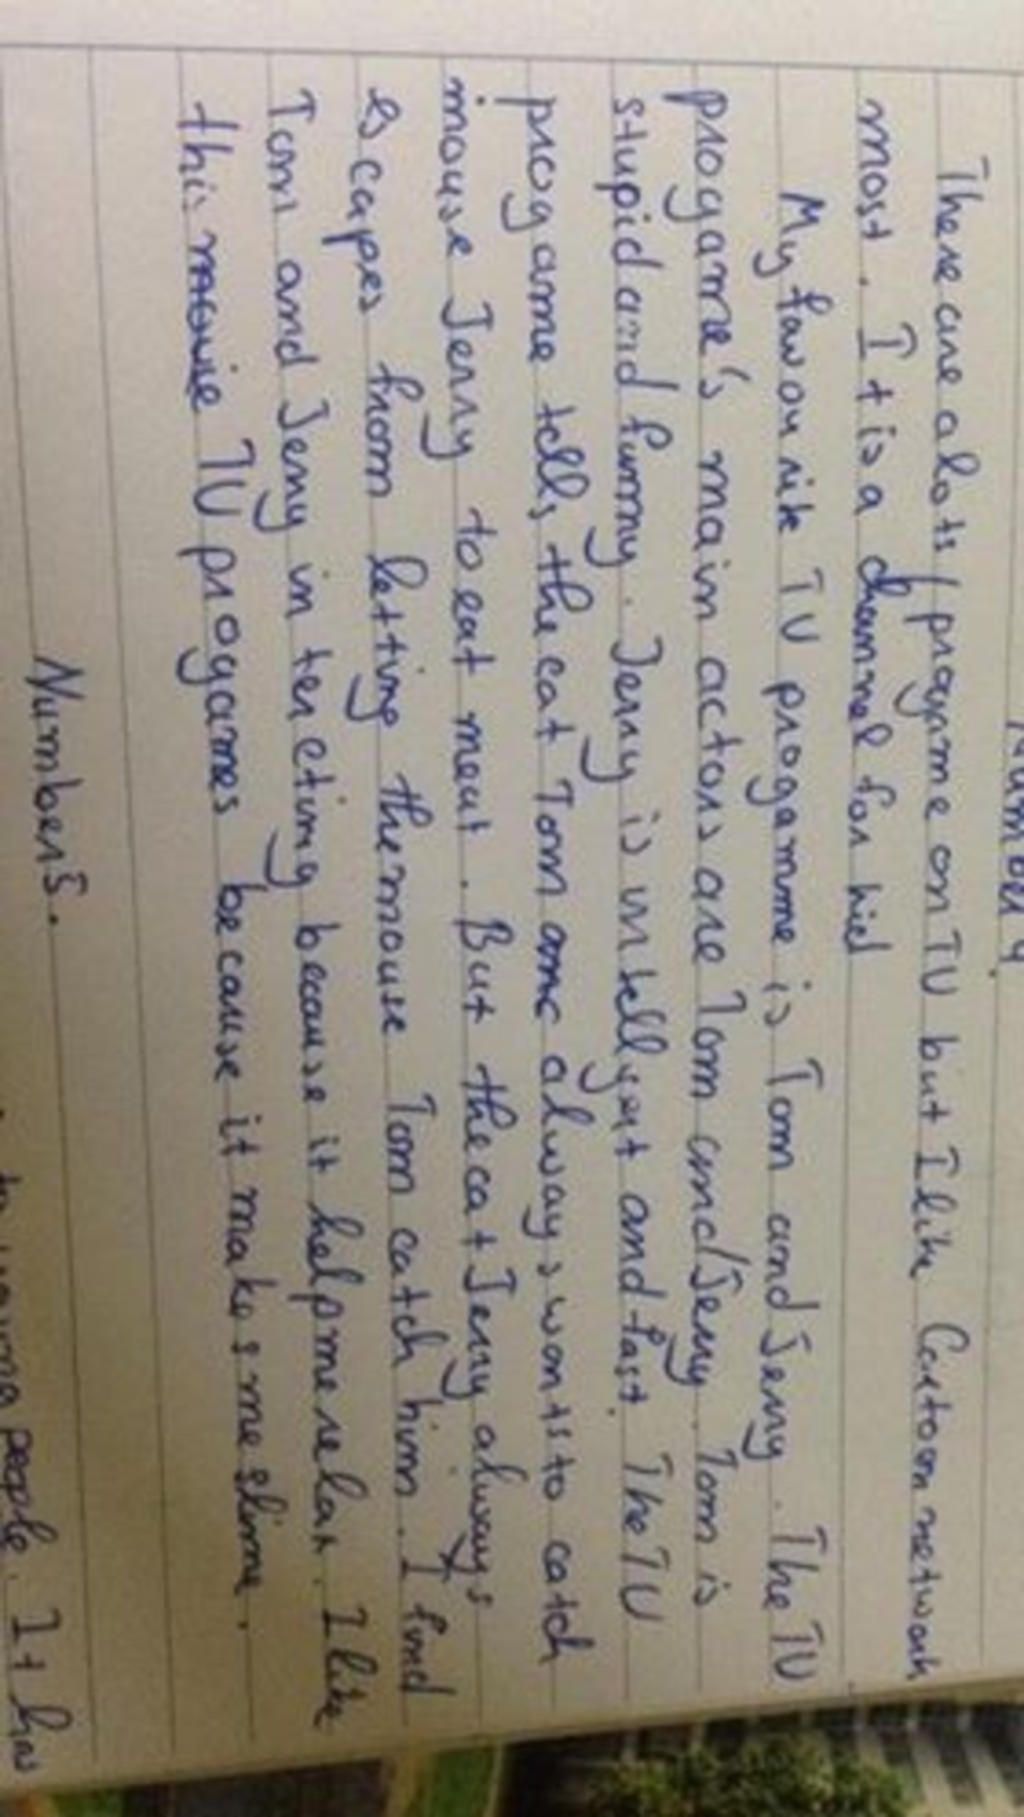 Number 4.
There are alots progrme on TV but I like Cartoon network
most. It is a channel for kid
My favourite TV programme is Tom and Jerry. The TV
programe's main actors are Tom and Jerry. Tom is
stupid and funny. Jerry is intellgent and fast. The TV
programe tells the cat Tom always wants to catch
mouse Jerry to eat meat. But the cat Jerry always
escapes from letting the mouse Tom catch him. I find
Tom and Jerry in terecting because it help me relax. I like
this TV programes because it makes me slime.
Number 5.
young people. It has